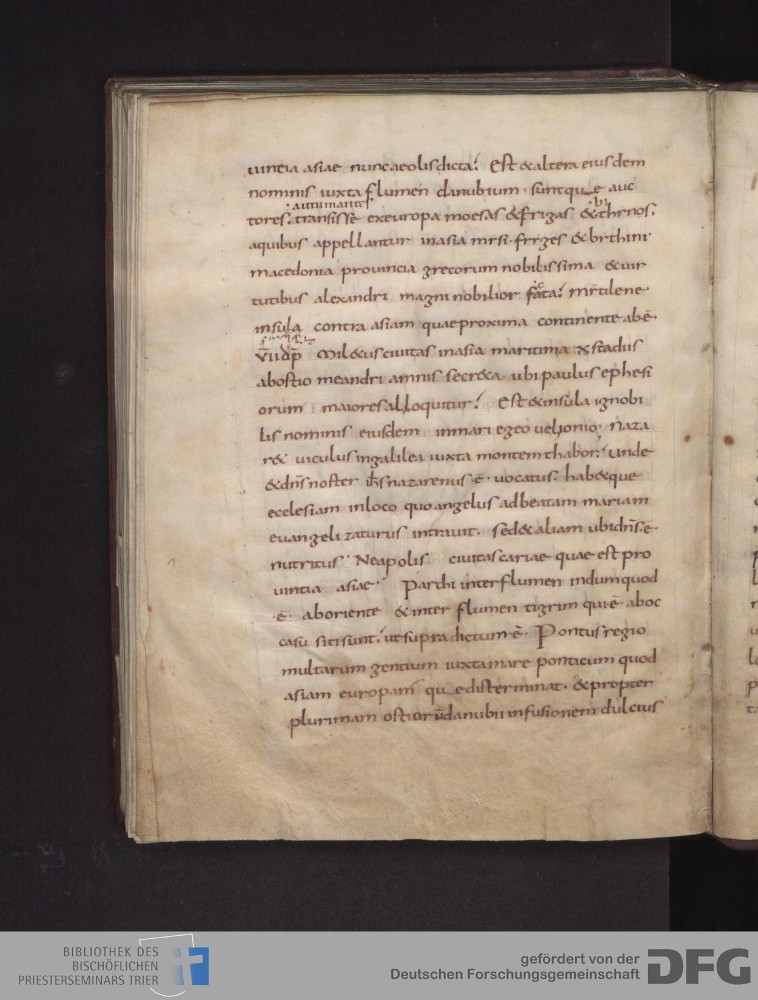 uintia asiae nuncaeolis dicta. Est & altera eiusdem
nominis iuxta flumen danubium. suntque auc
autumant
bi
tores. transisse exeuropa moesas & frigas & thinos.
aquibus appellantur inasia misi. friges & bithini.
macedonia prouincia grecorum nobilissima &uir
tutibus alexandri magni nobilior facta. mitilene
insula contra asiam quaeproxima continente abē.
v̄ıı d p̄ Mil&us ciuitas inasia maritima x stadiis
abostio meandri amnis secr&a. ubi paulus ephesi
orum maiores alloquitur. Est & insula ignobi
lis nominis eiusdem inmari egeo uel ionio. naza
r& uiculus ingalilea iuxta montem thabor. unde
& dn̄s noster ih̄s nazarenus ē. uocatus. hab&que
ecclesiam inloco quo angelus ad beatam mariam
euangelizaturus intrauit. sed & aliam ubi dn̄s.ē.
nutritus. Neapolis ciuitas cariae quae est pro
uintia asiae. Parthi inter flumen indum quod
.ē. aboriente & inter flumen tigrim qui ē aboc
casu siti sunt. ut supra dictum ē. Pontus regio
multarum gentium iuxta mare ponticum quod
asiam europamque disterminat. & propter
plurimam ostiorū danubii infusionem dulcius
BIBLIOTHEK DES
BISCHÖFLICHEN
PRIESTERSEMINARS TRIER
gefördert von der
Deutschen Forschungsgemeinschaft
DFG